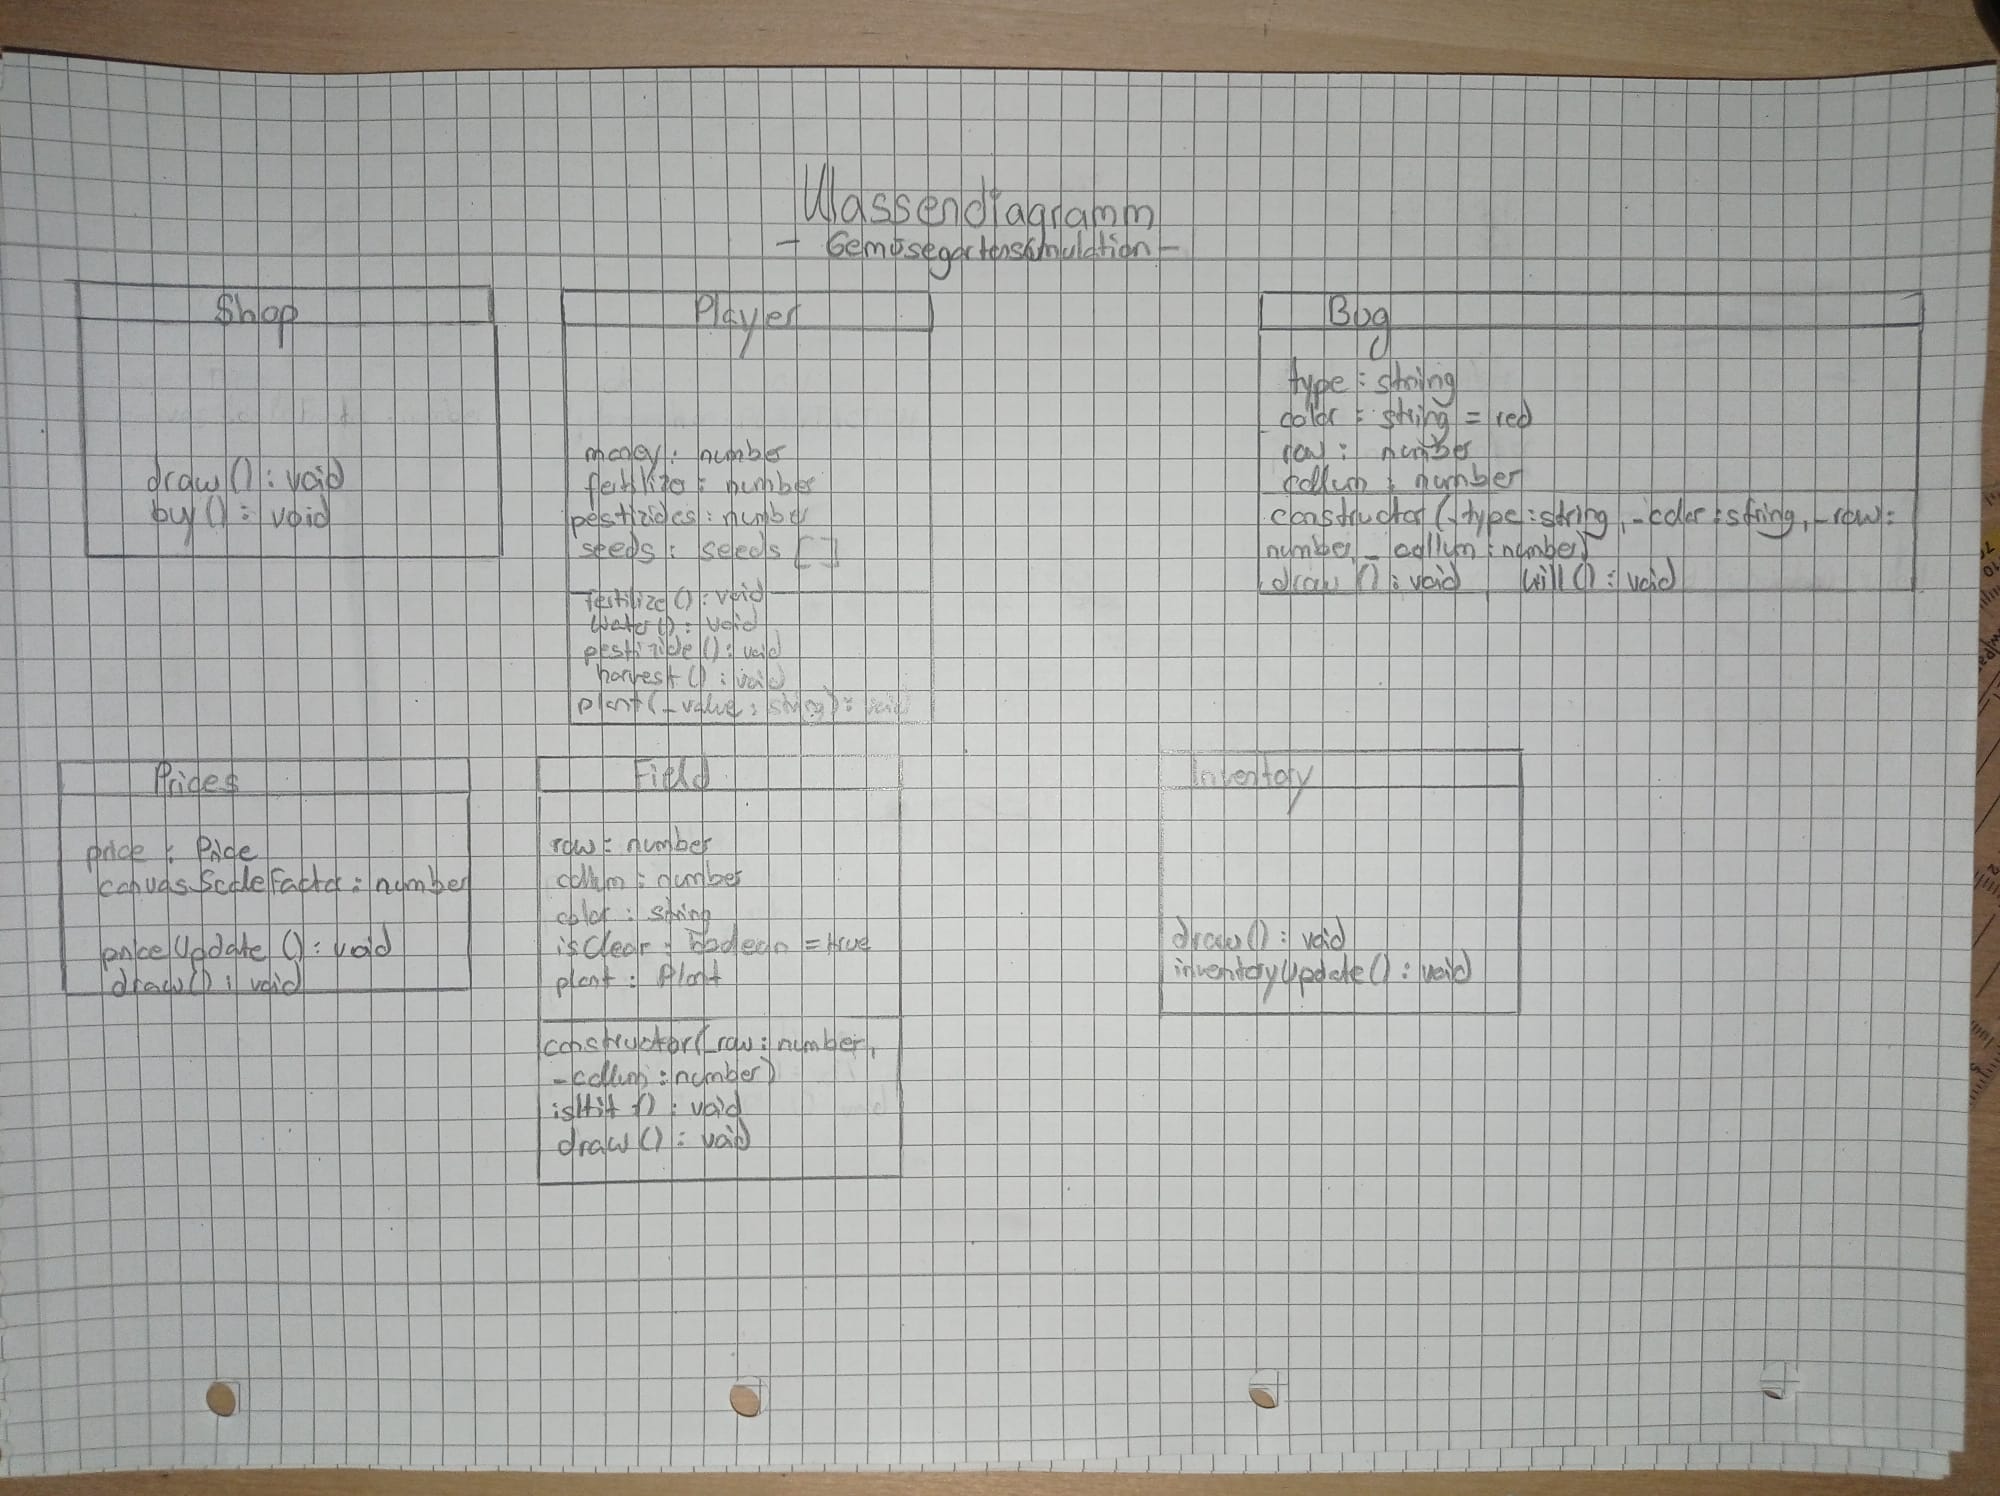 Klassendiagramm
- Gemüsegartensimulation -
Shop
draw() : void
buy() : void
Player
money : number
fertilizer : number
pestizides : number
seeds : seeds []
fertilize() : void
water() : void
pestizide() : void
harvest() : void
plant(_value : string) : void
Bug
type : string
color : string = red
row : number
collum : number
constructor(_type : string, _color : string, _row :
number, _collum : number)
draw() : void kill() : void
Prices
price : Price
canvasScaleFactor : number
priceUpdate() : void
draw() : void
Field
row : number
collum : number
color : string
isClear : boolean = true
plant : Plant
constructor(_row : number,
_collum : number)
isHit() : void
draw() : void
Inventory
draw() : void
inventoryUpdate() : void